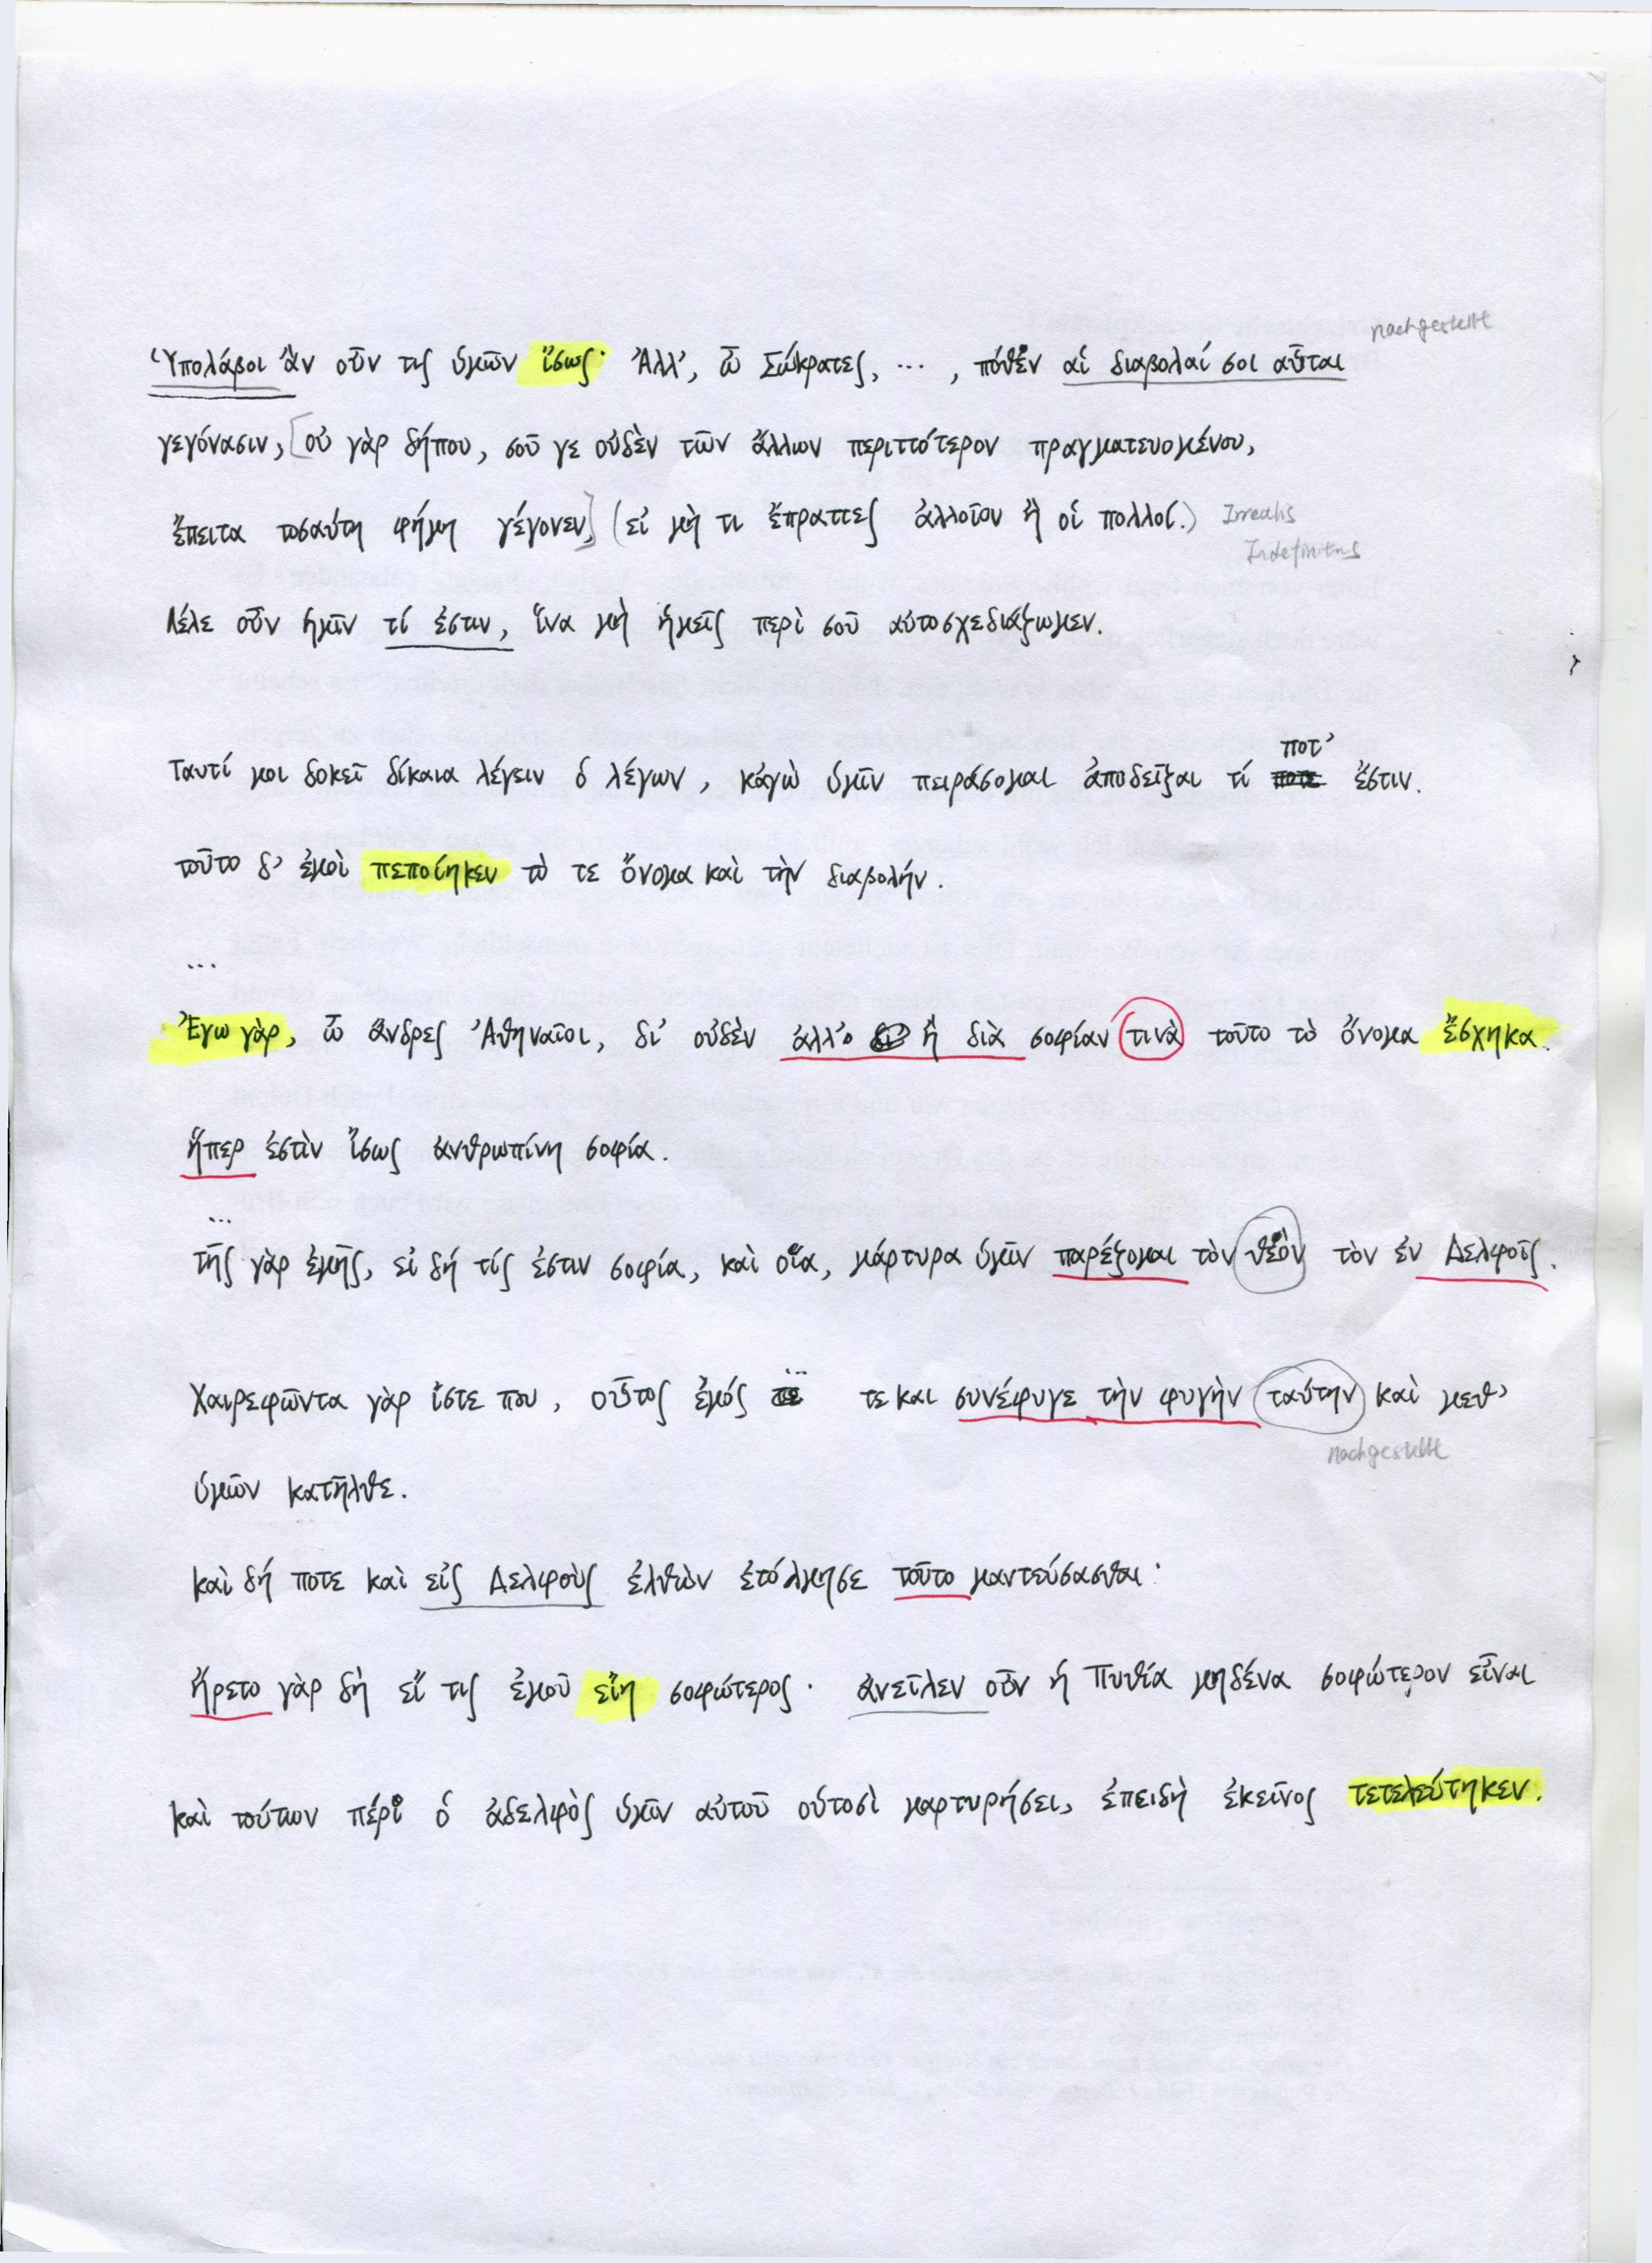 nachgestellt
Ὑπολάβοι ἂν οὖν τις ὑμῶν ἴσως· Ἀλλ', ὦ Σώκρατες, ... , πόθεν αἱ διαβολαί σοι αὗται
γεγόνασιν, [οὐ γὰρ δήπου, σοῦ γε οὐδὲν τῶν ἄλλων περιττότερον πραγματευομένου,
ἔπειτα τοσαύτη φήμη γέγονεν,] (εἰ μή τι ἔπραττες ἀλλοῖον ἢ οἱ πολλοί.) Irrealis
Indefinitus
λέλε οὖν ἡμῖν τί ἐστιν, ἵνα μὴ ἡμεῖς περὶ σοῦ αὐτοσχεδιάζωμεν.
ποτ'
ταυτί μοι δοκεῖ δίκαια λέγειν ὁ λέγων, κἀγὼ ὑμῖν πειράσομαι ἀποδεῖξαι τί ἔστιν.
τοῦτο δ' ἐμοὶ πεποίηκεν τό τε ὄνομα καὶ τὴν διαβολήν.
...
Ἐγω γὰρ, ὦ ἄνδρες Ἀθηναῖοι, δι' οὐδὲν ἀλλ' ἢ διὰ σοφίαν τινὰ τοῦτο τὸ ὄνομα ἔσχηκα.
ἥπερ ἐστὶν ἴσως ἀνθρωπίνη σοφία.
...
τῆς γὰρ ἐμῆς, εἰ δή τίς ἐστιν σοφία, καὶ οἵα, μάρτυρα ὑμῶν παρέξομαι τὸν θεὸν τὸν ἐν Δελφοῖς.
Χαιρεφῶντα γὰρ ἴστε που, οὗτος ἐμός τε και συνέφυγε τὴν φυγὴν ταύτην καὶ μεθ'
nachgestellt
ὑμῶν κατῆλθε.
καὶ δή ποτε καὶ εἰς Δελφοὺς ἐλθὼν ἐτόλμησε τοῦτο μαντεύσασθαι·
ἤρετο γὰρ δὴ εἴ τις ἐμοῦ εἴη σοφώτερος· ἀνεῖλεν οὖν ἡ Πυθία μηδένα σοφώτερον εἶναι
καὶ τούτων πέρι ὁ ἀδελφὸς ὑμῖν αὐτοῦ οὑτοσὶ μαρτυρήσει, ἐπειδὴ ἐκεῖνος τετελεύτηκεν.